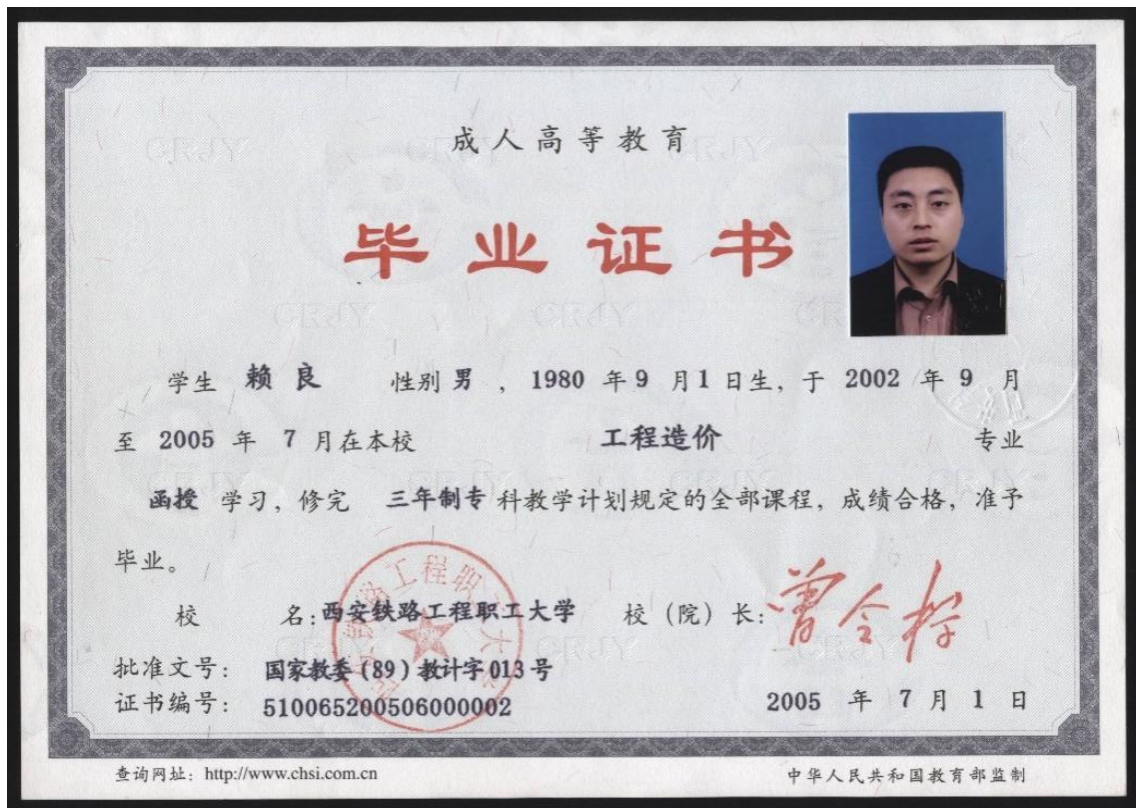 成人高等教育
毕业证书
学生 赖良 性别 男 , 1980 年 9 月 1 日生, 于 2002 年 9 月
至 2005 年 7 月在本校 工程造价 专业
函授 学习, 修完 三年制专 科教学计划规定的全部课程, 成绩合格, 准予
毕业。
校 名: 西安铁路工程职工大学 校 (院) 长:
批准文号: 国家教委 (89) 教计字 013 号
证书编号: 510065200506000002 2005 年 7 月 1 日
查询网址: http://www.chsi.com.cn 中华人民共和国教育部监制